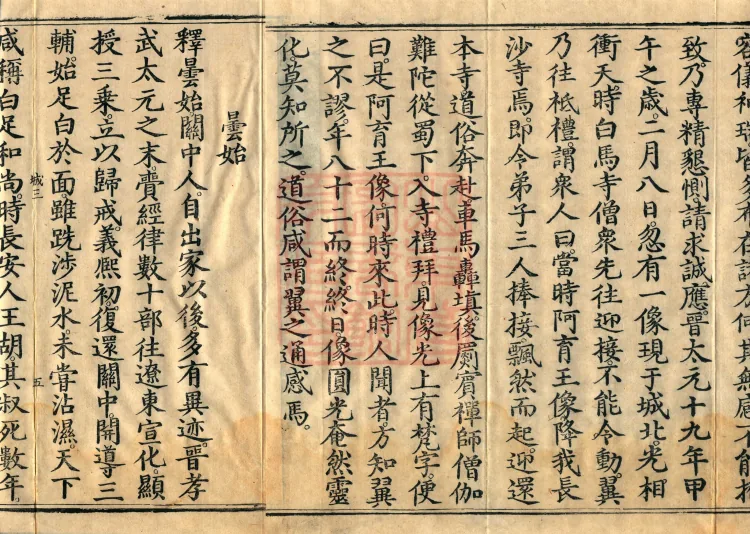 容儀神瑞皆多布在諸方何其無感不能招
致。乃專精懇惻。請求誠應。晉太元十九年甲
午之歲。二月八日。忽有一像現于城北。光相
衝天。時白馬寺僧衆先往迎接。不能令動。翼
乃往祇禮。謂衆人曰。當時阿育王像降我長
沙寺焉。即令弟子三人捧接。飄然而起。迎還
本寺。道俗奔赴。車馬轟填。後罽賓禪師僧伽
難陀從蜀下。入寺禮拜。見像光上有梵字。便
曰。是阿育王像。何時來此。時人聞者。方知翼
之不謬。年八十二而終。終日。像圓光奄然靈
化。莫知所之。道俗咸謂翼之通感焉。
曇始
釋曇始。關中人。自出家以後。多有異迹。晉孝
武太元之末。賷經律數十部。往遼東宣化。顯
授三乘。立以歸戒。義熙初。復還關中。開導三
輔。始足白於面。雖跣涉泥水。未嘗沾濕。天下
城三 五
咸稱白足和尚。時長安人王胡。其叔死數年。